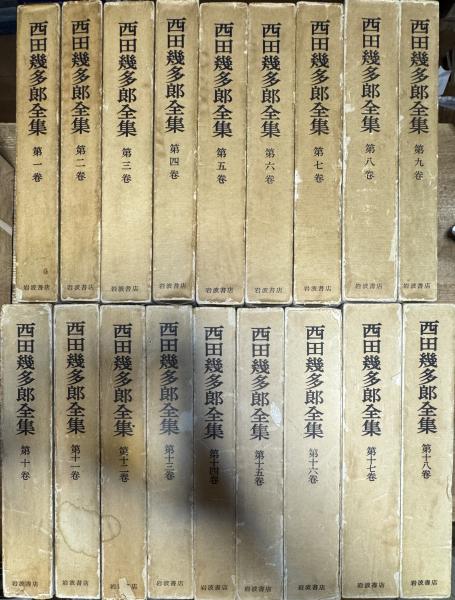 西田幾多郎全集 第一卷 岩波書店
西田幾多郎全集 第二卷 岩波書店
西田幾多郎全集 第三卷 岩波書店
西田幾多郎全集 第四卷 岩波書店
西田幾多郎全集 第五卷 岩波書店
西田幾多郎全集 第六卷 岩波書店
西田幾多郎全集 第七卷 岩波書店
西田幾多郎全集 第八卷 岩波書店
西田幾多郎全集 第九卷 岩波書店
西田幾多郎全集 第十卷 岩波書店
西田幾多郎全集 第十一卷 岩波書店
西田幾多郎全集 第十二卷 岩波書店
西田幾多郎全集 第十三卷 岩波書店
西田幾多郎全集 第十四卷 岩波書店
西田幾多郎全集 第十五卷 岩波書店
西田幾多郎全集 第十六卷 岩波書店
西田幾多郎全集 第十七卷 岩波書店
西田幾多郎全集 第十八卷 岩波書店